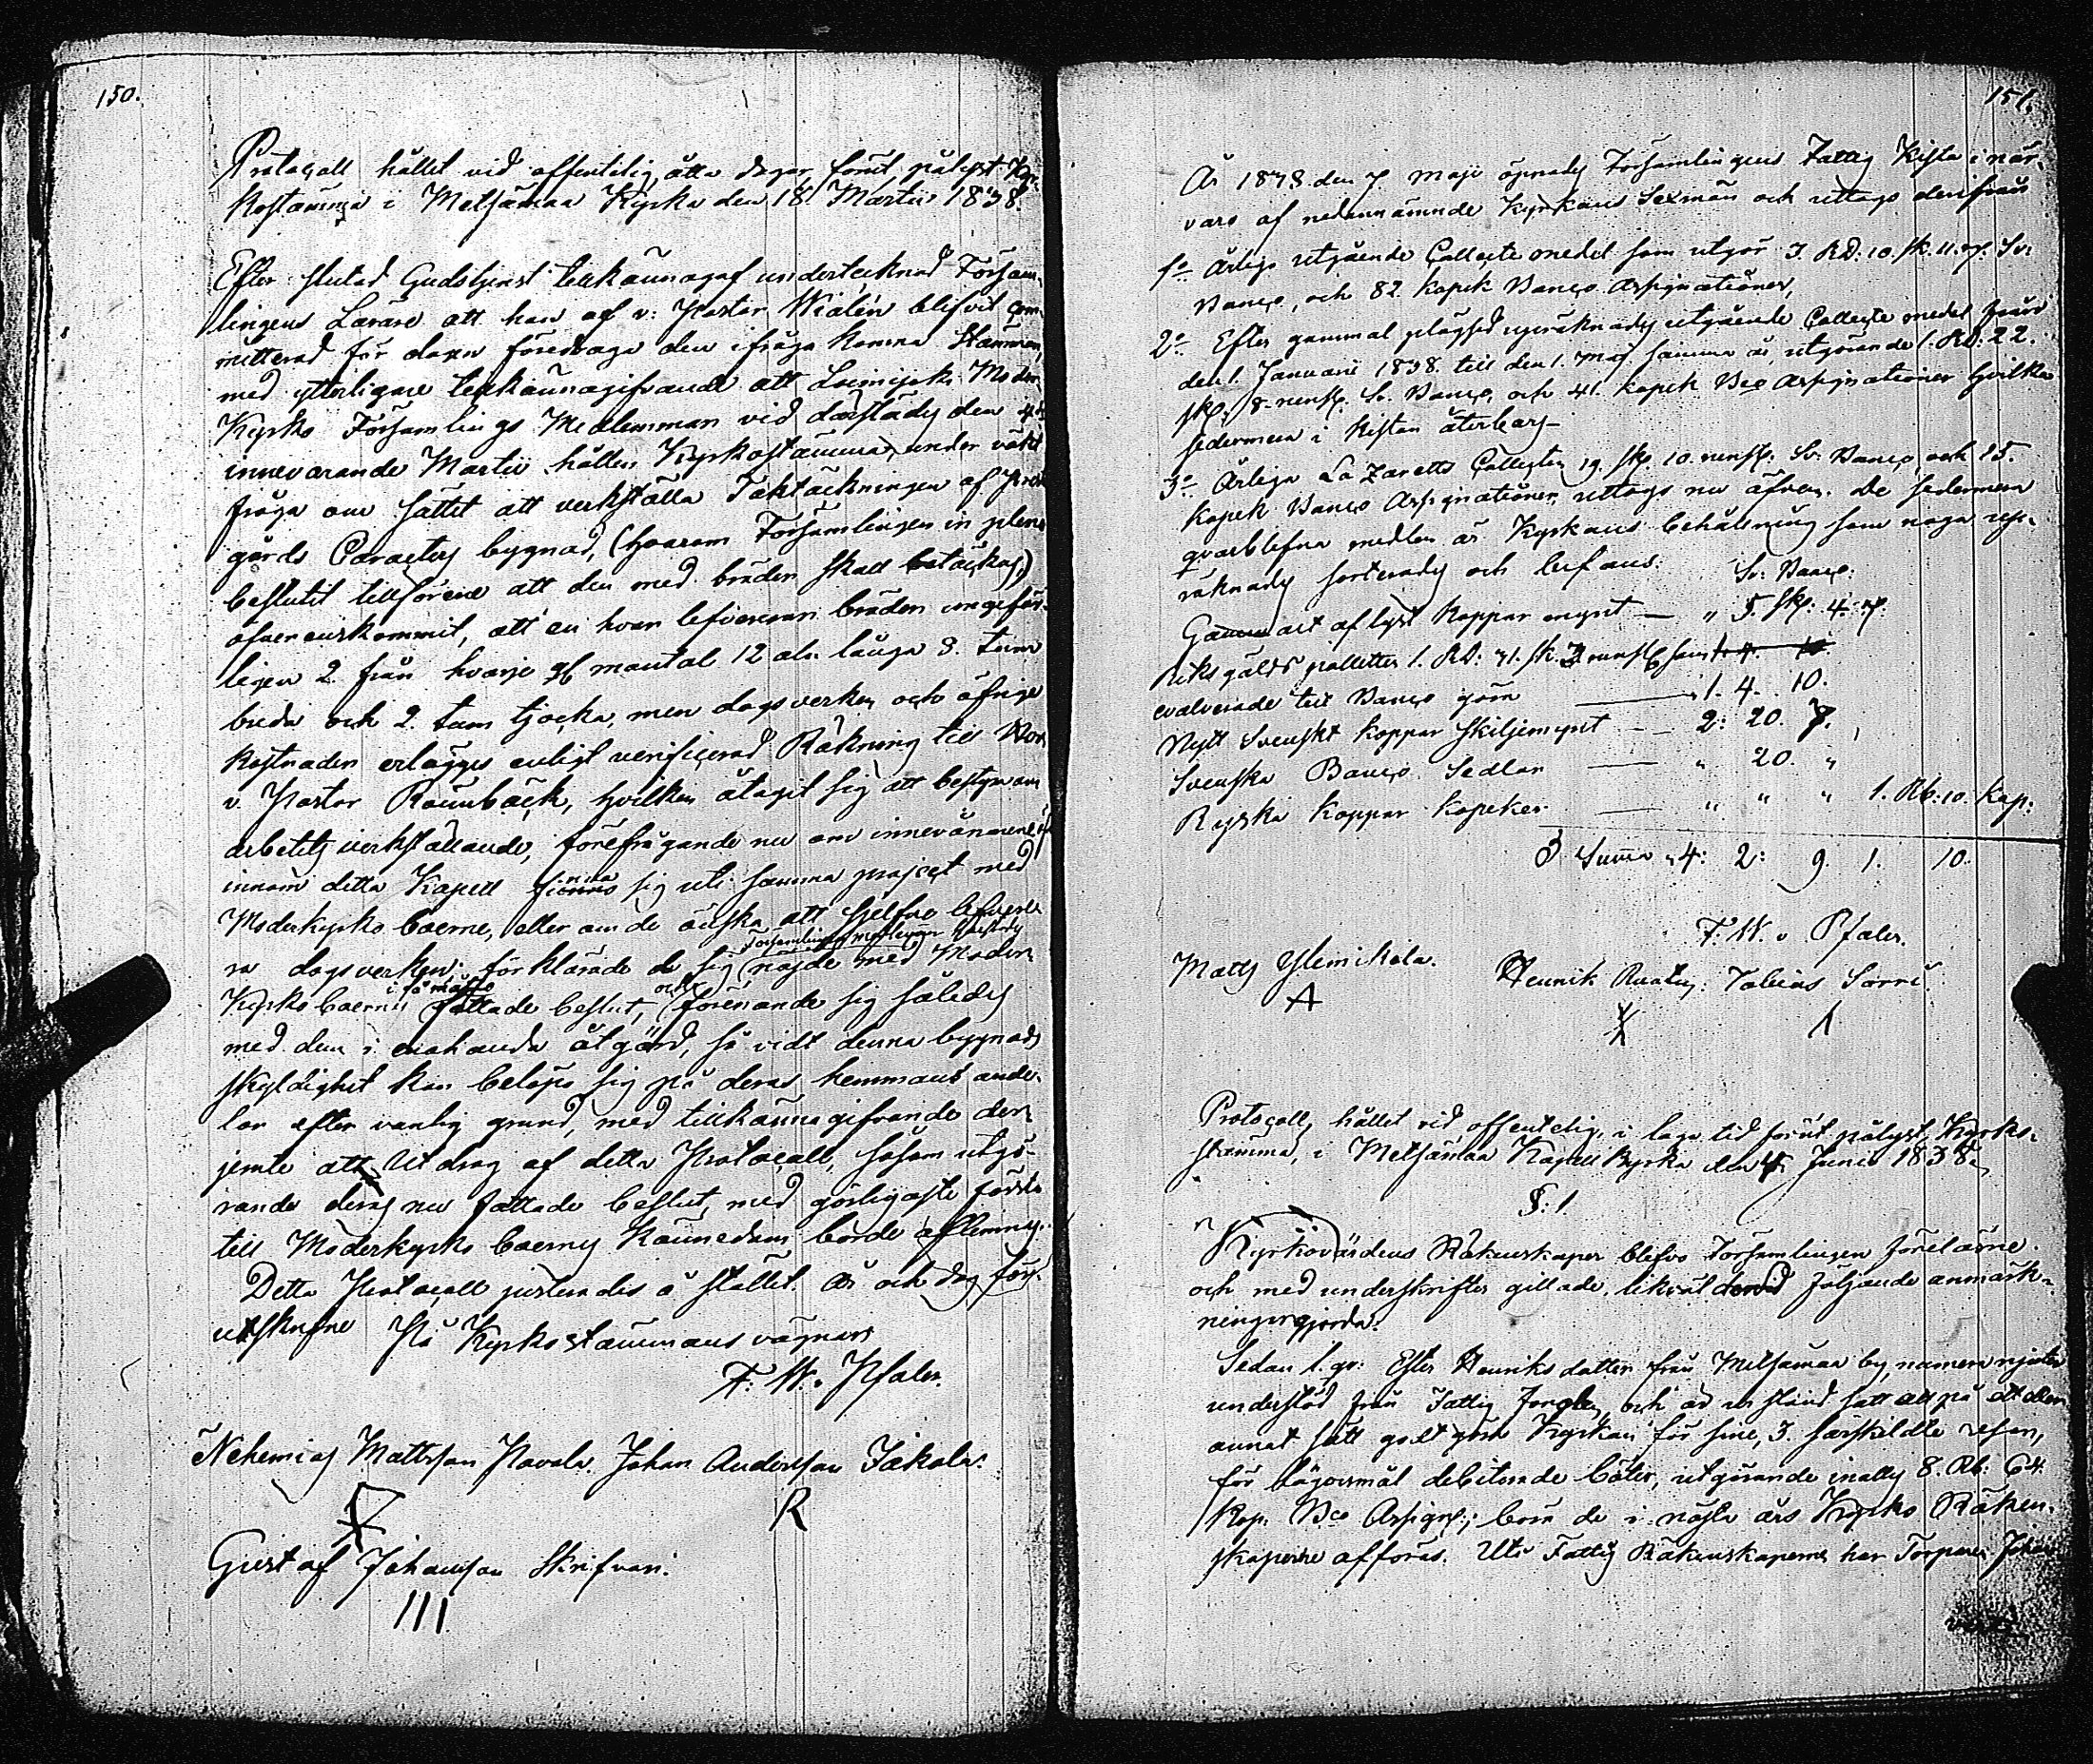 150.
Protocoll hållet vid offentelig, åtta dagar förut pålyst Kyr-
kostämma i Metsämaa Kyrka den 18 Martii 1838.
Efter slutad Gudstjenst tillkännagaf undertecknad Försam-
lingens Lärare att han af v: Pastor Widlén blifvit com-
mitterad för dagen föredraga den i fråga komna Stämman,
med ytterligare tillkännagifvande att Loimijoki Moder
Kyrko Församlings Medlemmar vid därstädes den 4de
innevarande Martii hållen Kyrkostämma, under väkt
fråga om sättet att verkställa Taktäckningen af Prest
gårds Caracters bygnad, (hvarom Församlingen in pleno
beslutit tillförene att den med bräden skall betäckas,)
öfverenskommit, att en hvar lefvererar bräder ungefär-
ligen 2 från hvarje mantal 12 aln långa 8. tum
breda och 2. tum tjocka, men dagsverken och öfrige
kostnaden erlägges enligt verificerad Räkning till
v. Pastor Rönnbäck, hvilken åtagit sig att bestyra om
arbetets verkställande, förefrågande nu om innevånarene
innom detta Kapell finna sig uti samma project med
Moderkyrko boerne, eller om de önska att sjelfve lefvere-
ra dagsverken; förklarade de sig nöjde med Moder
Församlings
Kyrko boernes i så måtto fattade beslut, och förenande sig således
med den i enahanda åtgärd, så vidt denna byggnads
skyldighet kan belöpa sig på deras hemmans ande-
lar efter vanlig grund, med tillkännagifvande der-
jemte att Utdrag af detta Protocoll, såsom utgö-
rande deras nu fattade beslut, med görligaste första
till Moderkyrko boernes Kännedom borde aflemnas.
Detta Protocoll justerades å stället. År och dag för-
utskrefne På Kyrkostämmans vägnar
F. W. v Pfaler.
Nehemias Mattsson Pavola. Johan Andersson Jakola.
R
Gustaf Johansson Skrifvari.
III
151.
År 1838 den 7 Maji öpnades Församlingens Fattig Kista i när-
varo af nedannämnde Kyrkans Sexmän och uttogs derifrån
1o Årlige utgående Collecte medel som utgör 3. RD: 10. sk. 11. r. Sv:
Banco, och 82 kopek Banco Assignationer,
2o Efter gammal plägsed uperäknades utgående Collecte medel från
den 1. Januarii 1838 till den 1. Maj samma år utgörande 1. RD: 22.
sk. 8. runst. Sv. Banco, och 41. kopek Bco Assignationer hvilka
sedermera i Kistan återbars
3o Årliga Lazaretts Collecten 19. sk. 10. runst. Sv. Banco och 15.
kopek Banco Assignationer, uttogs nu äfven. De sedermera
qvarblefna medlen är Kyrkans behållning som noga upp-
räknades sorterades och befans. Sv: Banco:
Gammalt aflyst koppar mynt — " 5. sk: 4. r.
Riksgälds polletter 1. RD: 31. sk. 3 runst som
evalverade till Banco göra — 1. 4. 10.
Nytt Svenskt koppar skiljemynt — 2: 20. 7.
Svenska Banco Sedlar — " 20. "
Ryska koppar kopeker — " " " 1. Rb: 10. kop:
Summa 4: 2: 9. 1. 10.
F. W. v Pfaler.
Matts Ylimikola. Henrik Tobias Sorri.
A
Protocoll, hållet vid offentelig, i laga tid förut pålyst Kyrko-
stämma, i Metsämaa Kapell Kyrka den 4. Junii 1838.
§: 1
Kyrkovärdens Räkenskaper blefvo Församlingen föreläsne
och med underskrifter gillade, likväl dervid följande anmärk-
ningar gjorda.
Sedan l. qv: Ester Henriksdotter från Metsämaa by, numera njuter
understöd från Fattig fonden, och är ur stånd satt att på ett eller
annat sätt godt göra Kyrkan för sine, 3. särskildte resor,
för lägersmål debiterade böter, utgörande inalles 8. Rb: 64.
Kop. Bco Assign:; böra de i nästa års Kyrko Räken-
skaperne afföras. Uti Fattig Räkenskaperne har Torparen Johan